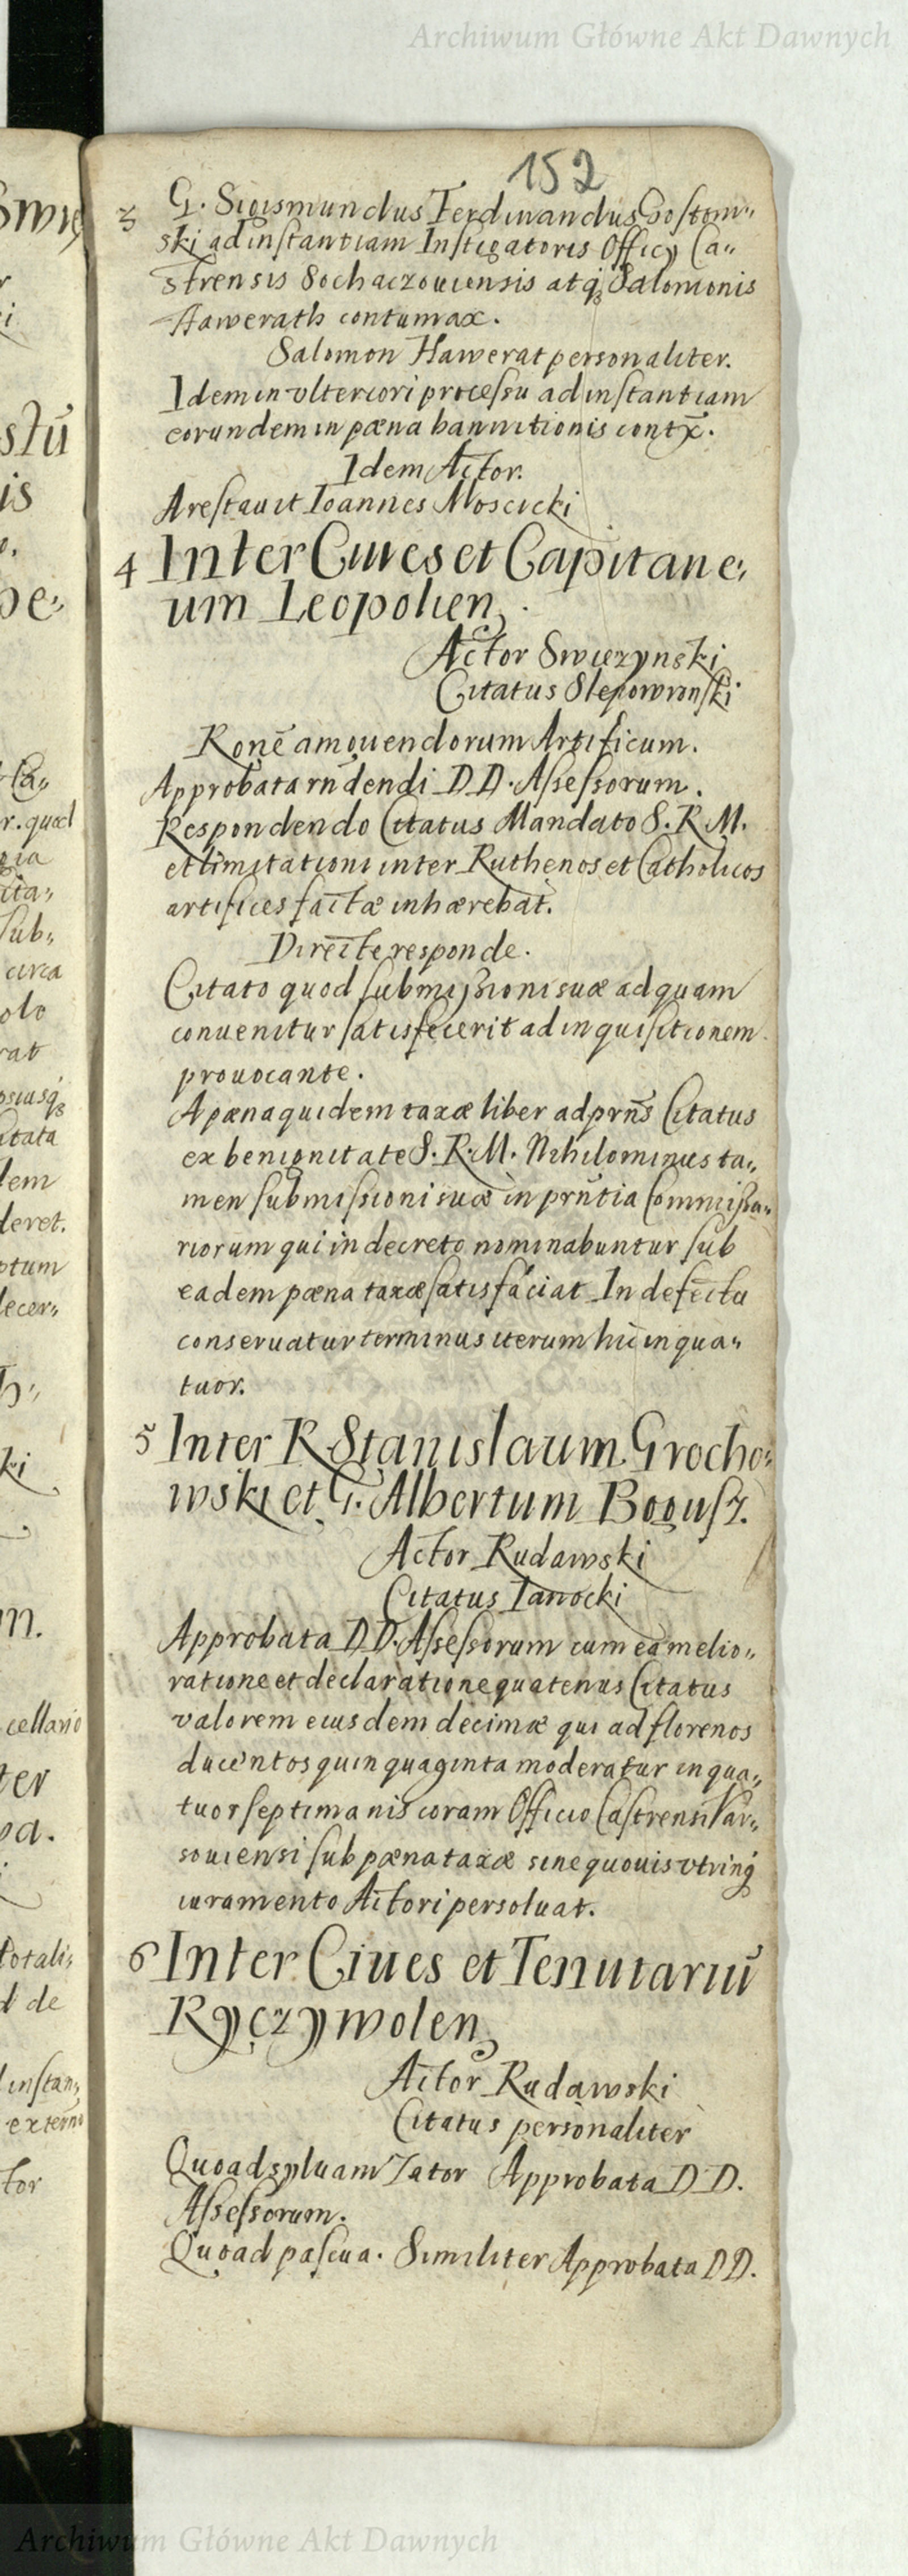 Archiwum Główne Akt Dawnych
152
3 G. Sigismundus Ferdinandus Gostom„
ski ad instantiam Instigatoris Officy Ca„
strensis Sochaczouiensis atq Salomonis
Hawerath contumax.
Salomon Hawerat personaliter.
Idem in vlteriori processu ad instantiam
eorundem in pæna bannitionis contx.
Idem Actor.
Arestauit Ioannes Moscicki
4 Inter Ciues et Capitane„
um Leopolien
Actor Swiezynski
Citatus Slepowronski
Ronē amouendorum Artificum.
Approbata rn̄dendi DD. Assessorum.
Respondendo Citatus Mandato S. R. M.
et limitationi inter Ruthenos et Catholicos
artifices factæ inhærebat.
Directe responde.
Citato quod submissioni suæ ad quam
conuenitur satisfecerit ad inquisitionem
prouocante.
A pæna quidem taxæ liber ad prn̄s Citatus
ex benignitate S. R. M. Nihilominus ta„
men submissioni suæ in prn̄tia Commissa„
riorum qui in decreto nominabuntur sub
eadem pæna taxæ satisfaciat In defectu
conseruatur terminus iterum hic in qua„
tuor.
5 Inter R Stanislaum Grocho„
wski et G. Albertum Bogusz.
Actor Rudawski
Citatus Ianocki
Approbata DD. Assessorum cum ea melio„
ratione et declaratione quatenus Citatus
valorem eiusdem decimæ qui ad florenos
ducentos quinquaginta moderatur in qua„
tuor septimanis coram Officio Castrensi Var„
souiensi sub pæna taxæ sine quouis vtrinq
iuramento Actori persoluat.
6 Inter Ciues et Tenutariū
Ryczywolen
Actor Rudawski
Citatus personaliter
Quoad syluam Approbata DD.
Assessorum.
Quoad pascua. Similiter Approbata DD.
Archiwum Główne Akt Dawnych